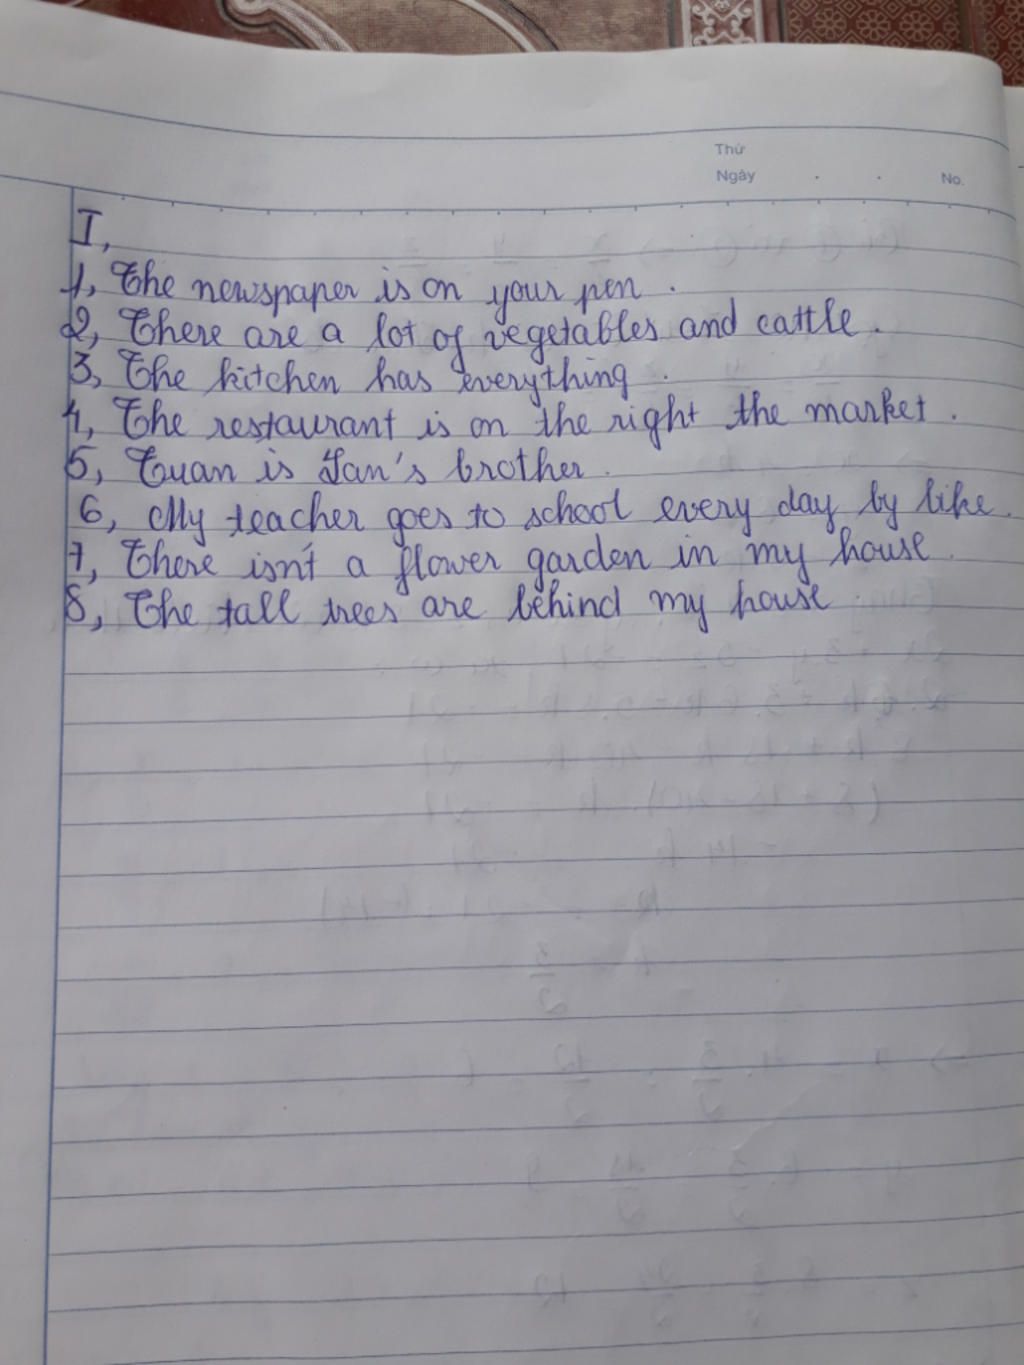 Thứ
Ngày . . No.
I,
1, The newspaper is on your pen .
2, There are a lot of vegetables and cattle .
3, The kitchen has everything .
4, The restaurant is on the right the market .
5, Tuan is Lan's brother .
6, My teacher goes to school every day by bike .
7, There isn't a flower garden in my house .
8, The tall trees are behind my house .